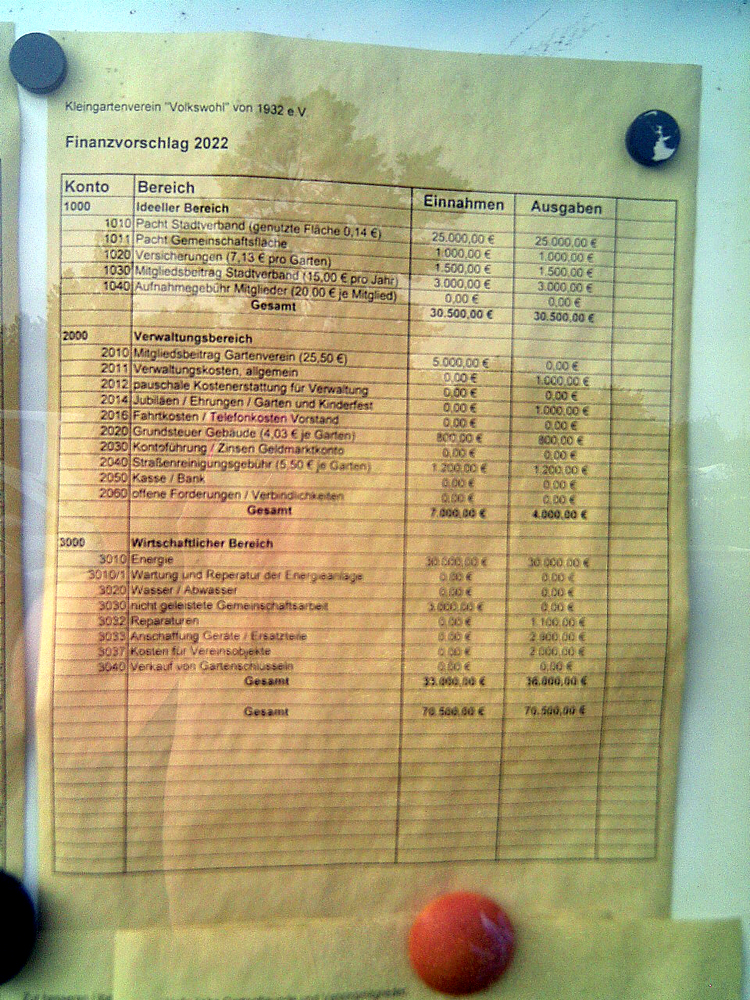 Kleingartenverein "Volkswohl" von 1932 e.V.
Finanzvorschlag 2022
Konto Bereich Einnahmen Ausgaben
1000 Ideeller Bereich
1010 Pacht Stadtverband (genutzte Fläche 0,14 €) 25.000,00 € 25.000,00 €
1011 Pacht Gemeinschaftsfläche 1.000,00 € 1.000,00 €
1020 Versicherungen (7,13 € pro Garten) 1.500,00 € 1.500,00 €
1030 Mitgliedsbeitrag Stadtverband (15,00 € pro Jahr) 3.000,00 € 3.000,00 €
1040 Aufnahmegebühr Mitglieder (20,00 € je Mitglied) 0,00 € 0,00 €
Gesamt 30.500,00 € 30.500,00 €
2000 Verwaltungsbereich
2010 Mitgliedsbeitrag Gartenverein (25,50 €) 5.000,00 € 0,00 €
2011 Verwaltungskosten, allgemein 0,00 € 1.000,00 €
2012 pauschale Kostenerstattung für Verwaltung 0,00 € 0,00 €
2014 Jubiläen / Ehrungen / Garten und Kinderfest 0,00 € 1.000,00 €
2016 Fahrtkosten / Telefonkosten Vorstand 0,00 € 0,00 €
2020 Grundsteuer Gebäude (4,03 € je Garten) 800,00 € 800,00 €
2030 Kontoführung / Zinsen Geldmarktkonto 0,00 € 0,00 €
2040 Straßenreinigungsgebühr (5,50 € je Garten) 1.200,00 € 1.200,00 €
2050 Kasse / Bank 0,00 € 0,00 €
2060 offene Forderungen / Verbindlichkeiten 0,00 € 0,00 €
Gesamt 7.000,00 € 4.000,00 €
3000 Wirtschaftlicher Bereich
3010 Energie 30.000,00 € 30.000,00 €
3010/1 Wartung und Reperatur der Energieanlage 0,00 € 0,00 €
3020 Wasser / Abwasser 0,00 € 0,00 €
3030 nicht geleistete Gemeinschaftsarbeit 3.000,00 € 0,00 €
3032 Reparaturen 0,00 € 1.100,00 €
3033 Anschaffung Geräte / Ersatzteile 0,00 € 2.900,00 €
3037 Kosten für Vereinsobjekte 0,00 € 2.000,00 €
3040 Verkauf von Gartenschlüsseln 0,00 € 0,00 €
Gesamt 33.000,00 € 36.000,00 €
Gesamt 70.500,00 € 70.500,00 €